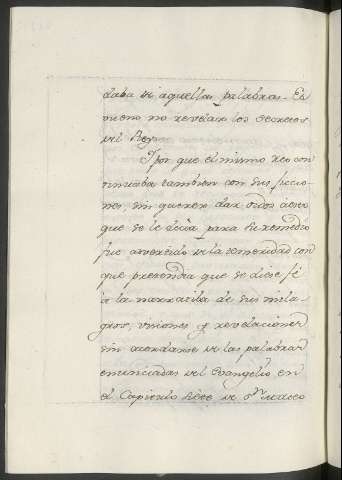 daba de aquellas palabras. Es
bueno no revelar los secretos
del Rey.
Y por que el mismo reo con
tinuaba tambien con sus ficcio-
nes, sin querer dar oidos a lo
que se le decia para su remedio
fue advertido de la temeridad con
que pretendia que se diese fé
á la narrativa de sus mila-
gros, visiones y revelaciones
sin acordarse de las palabras
enunciadas del Evangelio en
el Capitulo siete de Sn. Mateo